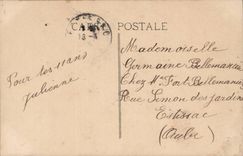 CARTE POSTALE
Pour tes 11 ans
Julienne
Mademoiselle
Germaine Bellemanière
Chez Mr Fort Bellemanière
Rue Simon des jardins
Estissac
(Aube)